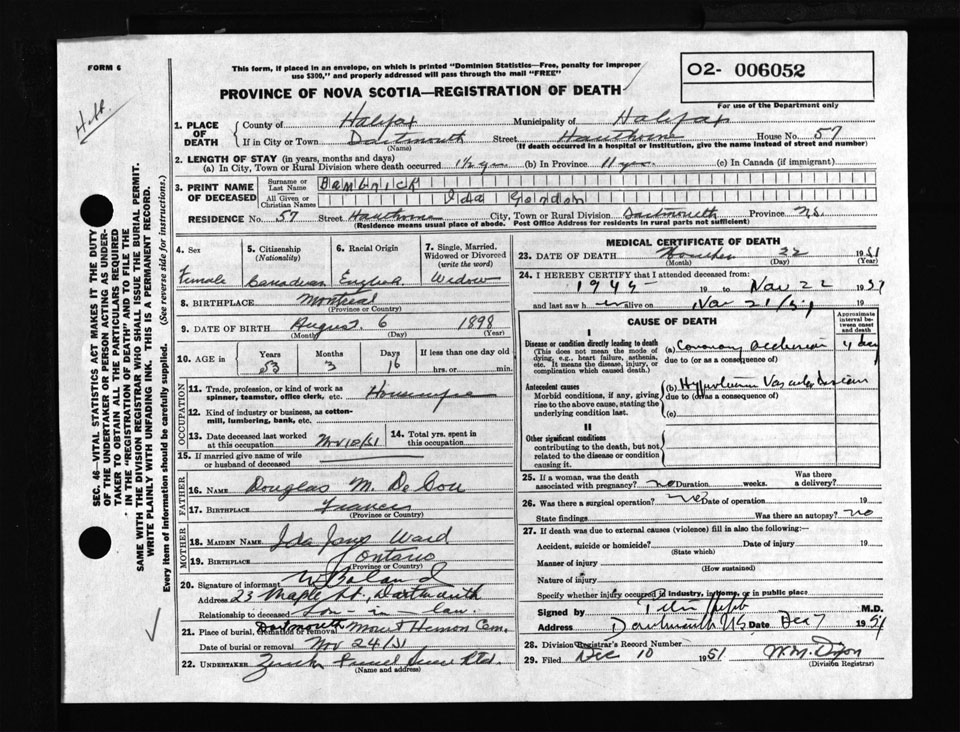 FORM 6
This form, if placed in an envelope, on which is printed "Dominion Statistics—Free, penalty for improper
use $300," and properly addressed will pass through the mail "FREE"
PROVINCE OF NOVA SCOTIA—REGISTRATION OF DEATH
O2- 006052
For use of the Department only
1. PLACE OF DEATH
County of Halifax Municipality of Halifax
If in City or Town Dartmouth Street Hawthorne House No. 57
(Name) (If death occurred in a hospital or institution, give the name instead of street and number)
2. LENGTH OF STAY (in years, months and days)
(a) In City, Town or Rural Division where death occurred 1½ yrs (b) In Province 11 years (c) In Canada (if immigrant)
3. PRINT NAME OF DECEASED
Surname or Last Name Bambrick
All Given or Christian Names Ida Gordon
RESIDENCE No. 57 Street Hawthorne City, Town or Rural Division Dartmouth Province N.S.
(Residence means usual place of abode. Post Office Address for residents in rural parts not sufficient)
4. Sex
Female
5. Citizenship
(Nationality)
Canadian
6. Racial Origin
English
7. Single, Married, Widowed or Divorced
(write the word)
Widow
8. BIRTHPLACE Montreal
(Province or Country)
9. DATE OF BIRTH August 6 1898
(Month) (Day) (Year)
10. AGE in Years Months Days If less than one day old
53 3 16 hrs. or min.
OCCUPATION
11. Trade, profession, or kind of work as
spinner, teamster, office clerk, etc. Housewife
12. Kind of industry or business, as cotton-
mill, lumbering, bank, etc.
13. Date deceased last worked
at this occupation Nov 10/51
14. Total yrs. spent in
this occupation
15. If married give name of wife
or husband of deceased
FATHER
16. NAME Douglas M.
17. BIRTHPLACE France
(Province or Country)
MOTHER
18. MAIDEN NAME Ida Jane Ward
19. BIRTHPLACE Ontario
(Province or Country)
20. Signature of informant W Boland
Address 23 Maple St., Dartmouth
Relationship to deceased Son-in-law.
21. Place of burial, cremation or removal Dartmouth Mount Hermon Cem.
Date of burial or removal Nov 24/51
22. UNDERTAKER
(Name and address)
MEDICAL CERTIFICATE OF DEATH
23. DATE OF DEATH November 22 1951
(Month) (Day)
24. I HEREBY CERTIFY that I attended deceased from:
1945 19 to Nov 22 1951
and last saw h er alive on Nov 21/51 19
CAUSE OF DEATH
Approximate interval between onset and death
I
Disease or condition directly leading to death
(This does not mean the mode of
dying, e.g., heart failure, asthenia,
etc. It means the disease, injury, or
complication which caused death.)
(a) Coronary occlusion
due to (or as a consequence of)
Antecedent causes
Morbid conditions, if any, giving
rise to the above cause, stating the
underlying condition last.
(b) Vascular Disease
due to (or as a consequence of)
(c)
II
Other significant conditions
contributing to the death, but not
related to the disease or condition
causing it.
25. If a woman, was the death
associated with pregnancy? no Duration weeks. Was there
a delivery?
26. Was there a surgical operation? no Date of operation 19
State findings Was there an autopsy? no
27. If death was due to external causes (violence) fill in also the following:—
Accident, suicide or homicide? Date of injury 19
(State which)
Manner of injury
(How sustained)
Nature of injury
Specify whether injury occurred in industry, in home, or in public place
Signed by M.D.
Address Dartmouth N.S. Dec 7 1951
28. Division Registrar's Record Number
29. Filed Dec 10 1951 W.M. Dixon
(Division Registrar)
SEC. 46—VITAL STATISTICS ACT MAKES IT THE DUTY
OF THE UNDERTAKER OR PERSON ACTING AS UNDER-
TAKER TO OBTAIN ALL THE PARTICULARS REQUIRED
IN THE "REGISTRATION OF DEATH" AND TO FILE THE
SAME WITH THE DIVISION REGISTRAR WHO SHALL ISSUE THE BURIAL PERMIT.
WRITE PLAINLY WITH UNFADING INK. THIS IS A PERMANENT RECORD.
Every item of information should be carefully supplied. (See reverse side for instructions.)